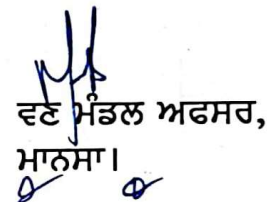 ਵਣ ਮੰਡਲ ਅਫਸਰ,
ਮਾਨਸਾ।